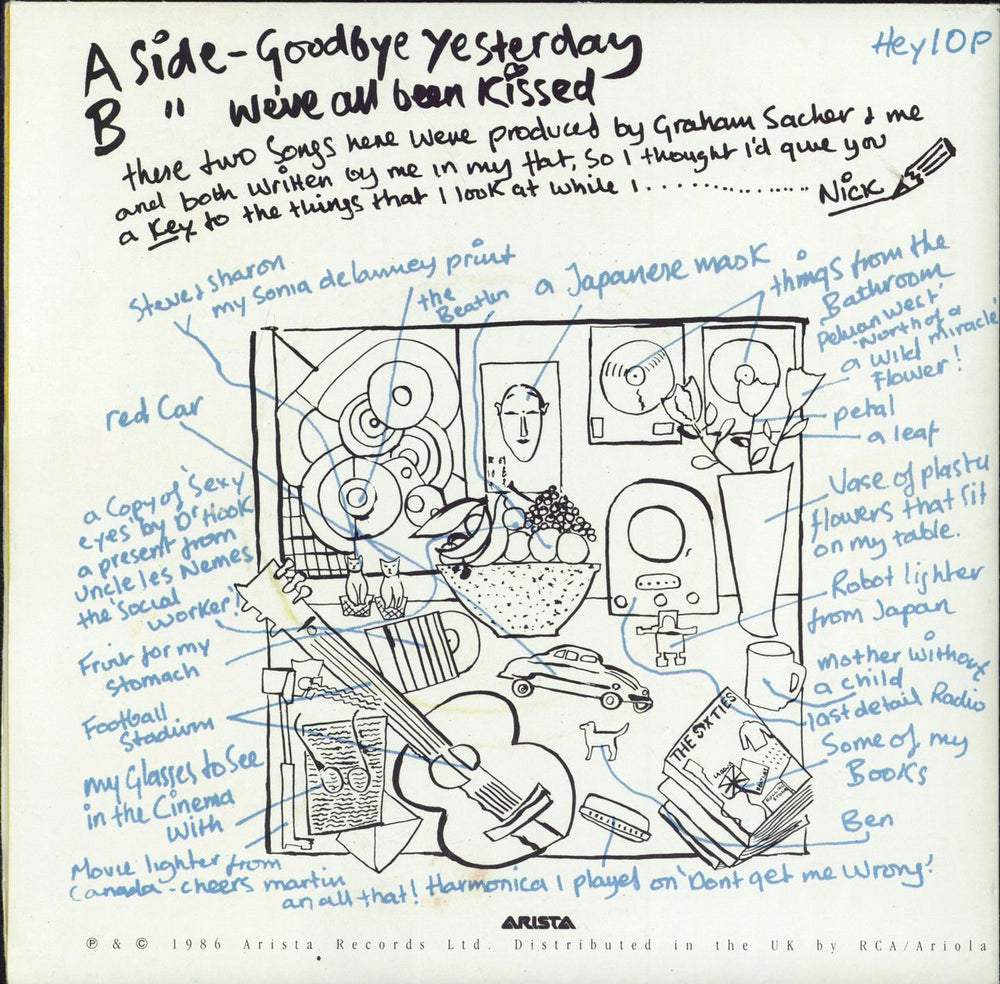 A Side - Goodbye Yesterday
Hey 10P
B " We've all been Kissed
these two Songs here were produced by Graham Sacher & me
and both written by me in my flat, so I thought I'd give you
a Key to the things that I look at while I.................
Nick
Steve & Sharon
my Sonia delanney print
the
Beatles
a Japanese mask
things from the
Bathroom
'North of a
a Wild miracle'
Flower!
petal
a leaf
red Car
a Copy of 'Sexy
eyes' by Dr Hook
a present from
uncle les Nemes
the 'Social
worker'!
Vase of plastic
flowers that sit
on my table.
Robot lighter
from Japan
Fruit for my
Stomach
mother without
a child
last detail Radio
Football
Stadium
THE SIXTIES
Some of my
Books
my Glasses to See
in the Cinema
With
Ben
Movie lighter from
Canada - cheers martin
an all that!
Harmonica I played on 'Dont get me Wrong'!
ARISTA
℗ & © 1986 Arista Records Ltd. Distributed in the UK by RCA/Ariola